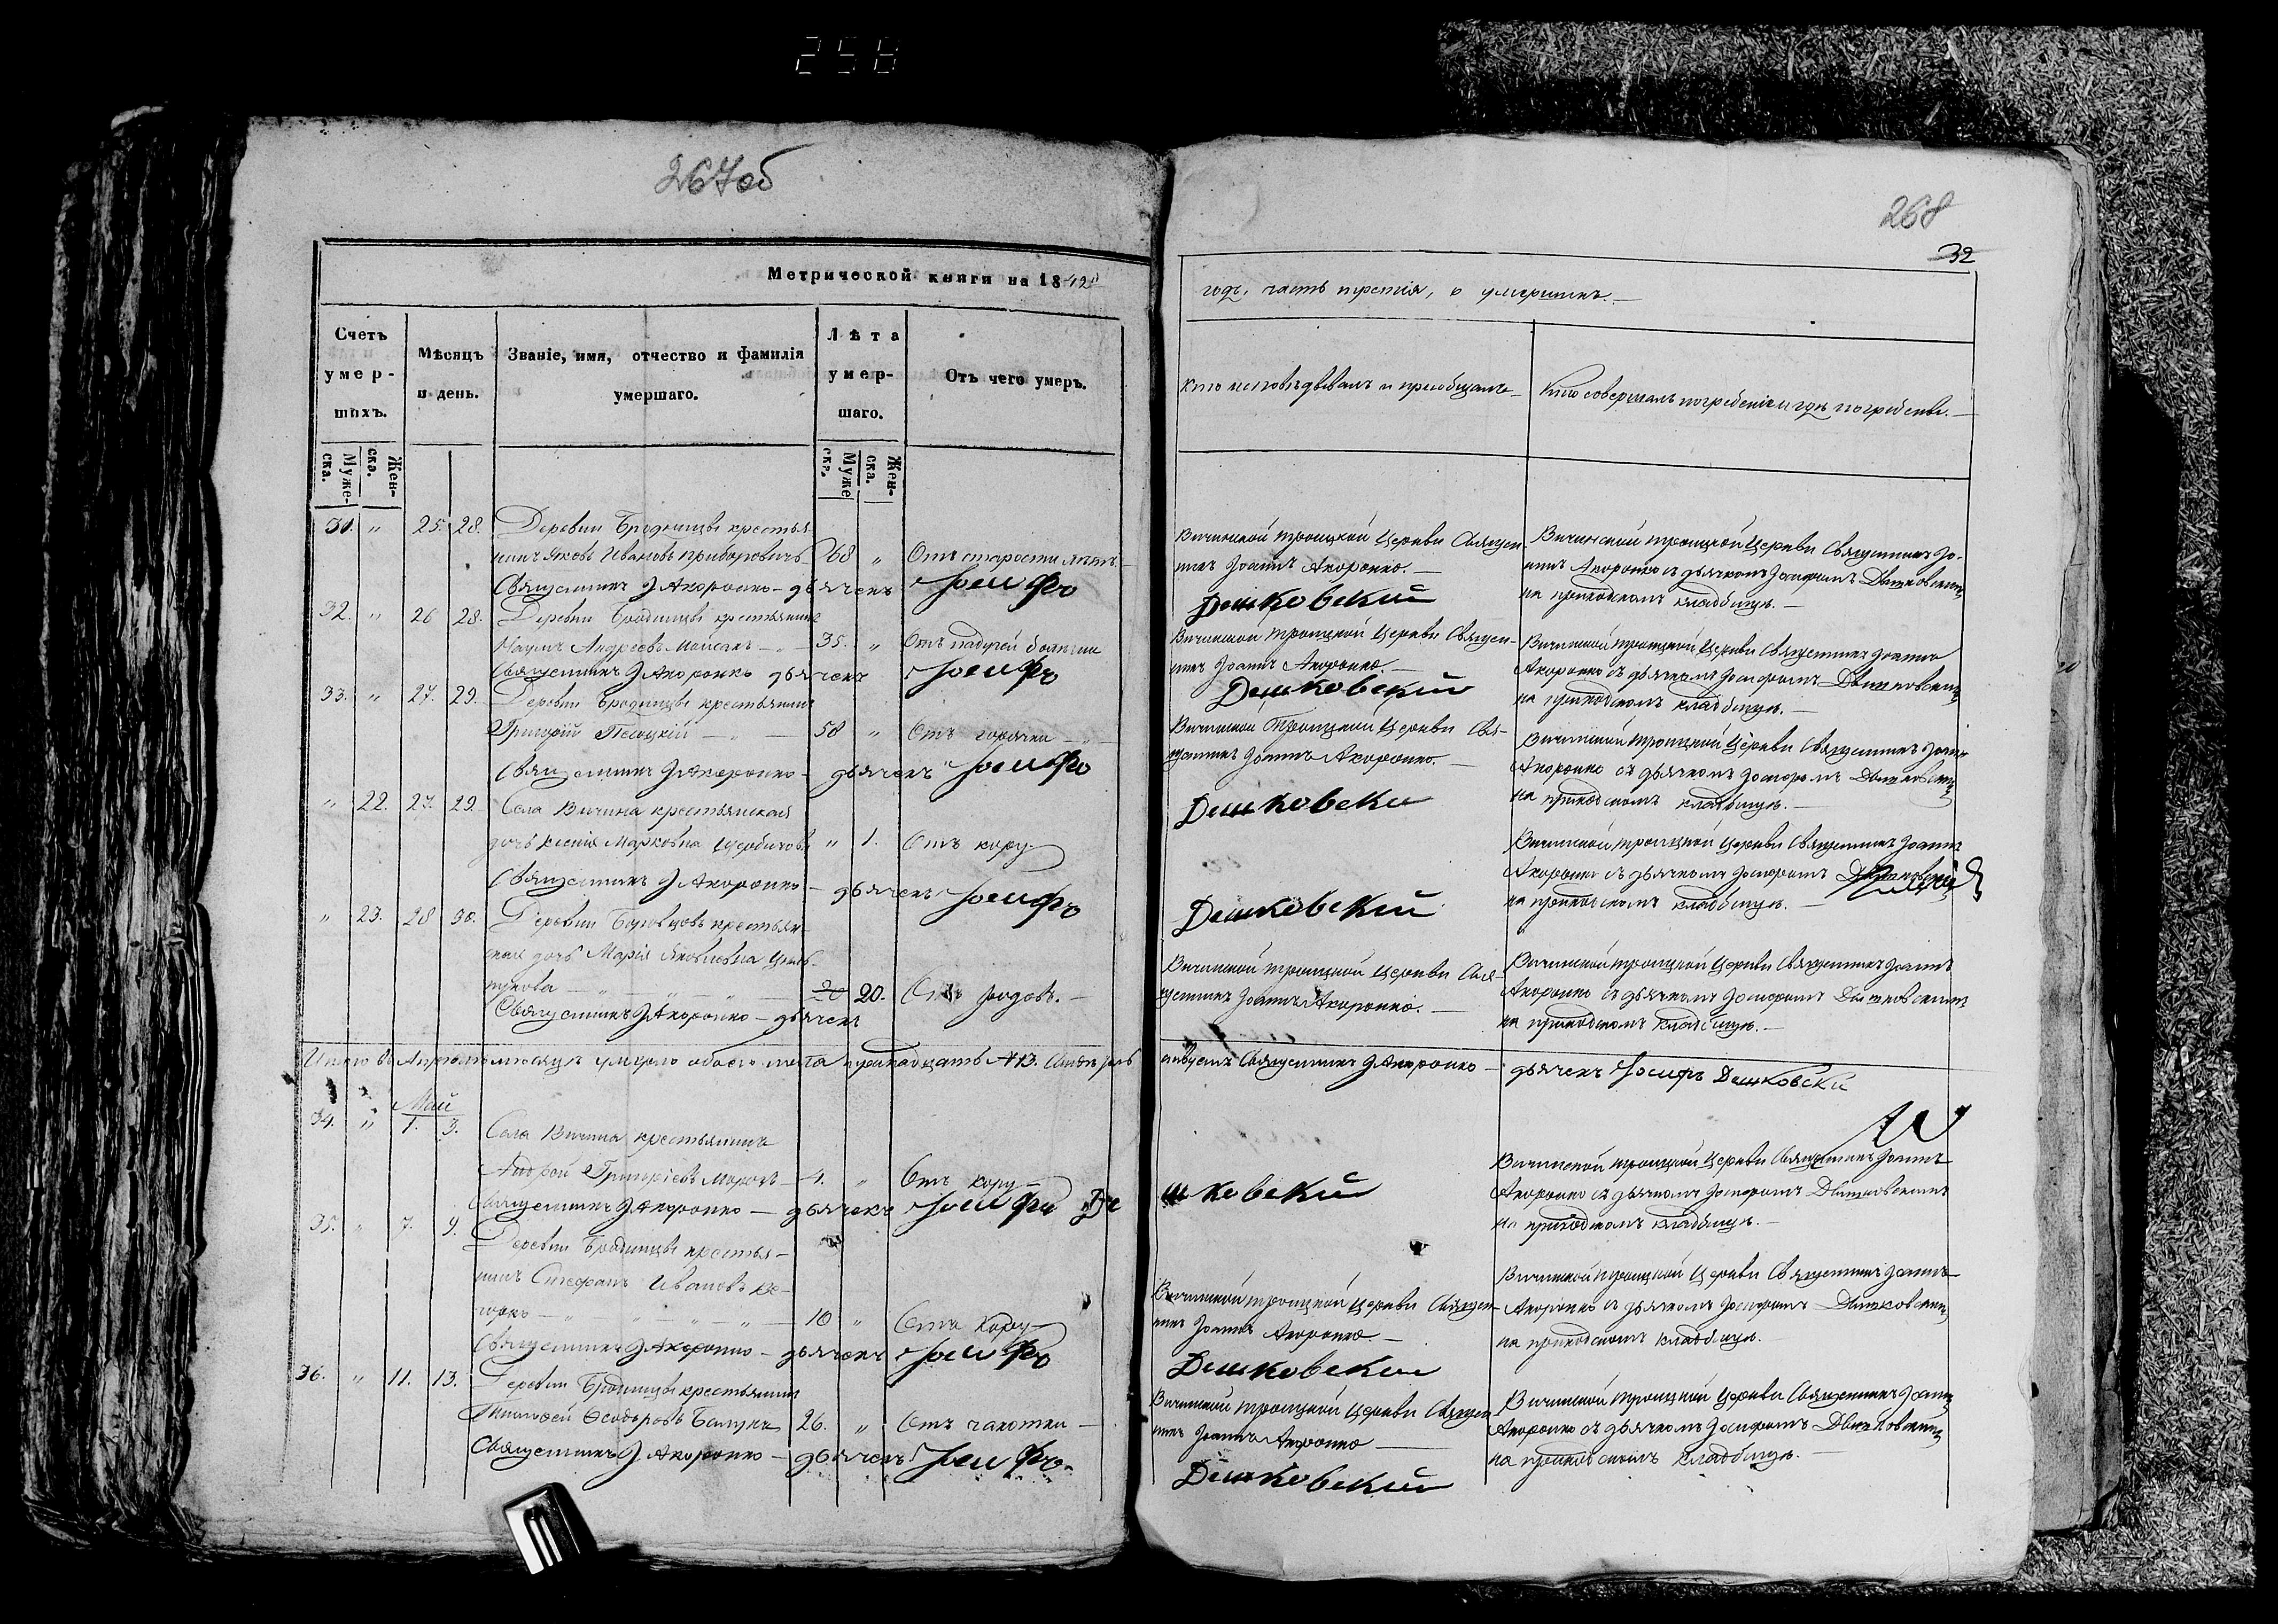 258
267об
268
32
Метрической книги на 1842й
годъ, часть третія, о умершихъ.
Счетъ умер-шихъ.
Мѣсяцъ и день.
Званіе, имя, отчество и фамилія умершаго.
Лѣта умер-шаго.
Отъ чего умеръ.
Кто исповѣдывалъ и пріобщалъ
Кто совершалъ погребеніе и гдѣ погребены.
Муже-ска.
Жен-ска.
Муже ска.
Жен-ска.
31. " 25. 28. Деревни Бродницы крестья-
нинъ Яковъ Ивановъ 68 " Отъ старости лѣтъ.
Священникъ І Акоронко – дьячекъ Іосифъ
Вичинской Троицкой Церкви Священ-
никъ Іоаннъ Акоронко. —
Дешковский
Вичинской Троицкой Церкви Священникъ Іо-
аннъ Акоронко съ дьячкомъ Іосифомъ Дешковскимъ
на приходскомъ кладбищѣ. —
32. " 26 28. Деревни Бродницы крестьянинъ
Наумъ Андреевъ 35. " Отъ падучей болѣзни
Священникъ І Акоронко дьячекъ Іосифъ
Вичинской Троицкой Церкви Священ-
никъ Іоаннъ Акоронко —
Дешковский
Вичинской Троицкой Церкви Священникъ Іоаннъ
Акоронко съ дьячкомъ Іосифомъ Дешковскимъ
на приходскомъ кладбищѣ. —
33. " 27. 29. Деревни Бродницы крестьянинъ
Григорій Песоцкій — " — 58 " Отъ горячки — " —
Священникъ І Акоронко – дьячекъ Іосифъ
Вичинской Троицкой Церкви Свя-
щенникъ Іоаннъ Акоронко. —
Дешковски
Вичинской Троицкой Церкви Священникъ Іоаннъ
Акоронко съ дьячкомъ Іосифомъ Дешковскимъ
на приходскомъ кладбищѣ. —
" 22. 27. 29. Села Вичина крестьянская
дочь Ксенія Марковна " 1. Отъ кору
Священникъ І Акоронко – дьячекъ Іосифъ
Дешковский
Вичинской Троицкой Церкви Священникъ Іоаннъ
Акоронко съ дьячкомъ Іосифомъ Дешковскимъ
на приходскомъ кладбищѣ. —
" 23. 28 30. Деревни крестьян-
ская дочь Марія Яковлевна
20 20. Отъ родовъ. —
Священникъ І Акоронко – дьячекъ
Вичинской Троицкой Церкви Свя-
щенникъ Іоаннъ Акоронко. —
Вичинской Троицкой Церкви Священникъ Іоаннъ
Акоронко съ дьячкомъ Іосифомъ Дешковскимъ
на приходскомъ кладбищѣ. —
Итого въ Апрѣлѣ мѣсяцѣ умерло обоего пола тринадцать №13.
Священникъ І Акоронко – дьячекъ Іосифъ Дешковски
Май
34. " 1. 3. Села Вичина крестьянинъ
Андрей Григоріевъ Морозъ – 1. " Отъ кору –
Священникъ І Акоронко – дьячекъ Іосифъ Де
шковский
Вичинской Троицкой Церкви Священникъ Іоаннъ
Акоронко съ дьячкомъ Іосифомъ Дешковскимъ
на приходскомъ кладбищѣ. —
35. " 7. 9. Деревни Бродницы крестья-
нинъ Стефанъ Ивановъ
10 " Отъ кору –
Священникъ І Акоронко – дьячекъ Іосифъ
Вичинской Троицкой Церкви Священ-
никъ Іоаннъ Акоронко —
Дешковски
Вичинской Троицкой Церкви Священникъ Іоаннъ
Акоронко съ дьячкомъ Іосифомъ Дешковскимъ
на приходскомъ кладбищѣ.
36. " 11. 13. Деревни Бродницы крестьянинъ
Тимофей Ѳеодоровъ 26. " Отъ чахотки —
Священникъ І Акоронко – дьячекъ Іосифъ
Вичинской Троицкой Церкви Священ-
никъ Іоаннъ Акоронко —
Дешковский
Вичинской Троицкой Церкви Священникъ Іоаннъ
Акоронко съ дьячкомъ Іосифомъ Дешковскимъ
на приходскомъ кладбищѣ. —